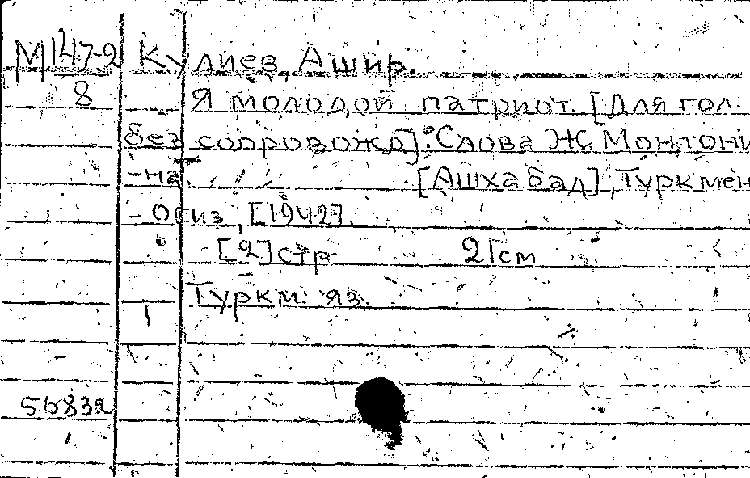 М 147-2 Кулиев, Ашир.
8 Я молодой патриот. [Для гол.
без сопровожд]. Слова Ж. Монтони
-на. [Ашхабад], Туркмен
- Огиз, [1942].
[2] стр 21 см
Туркм. яз.
1
56832